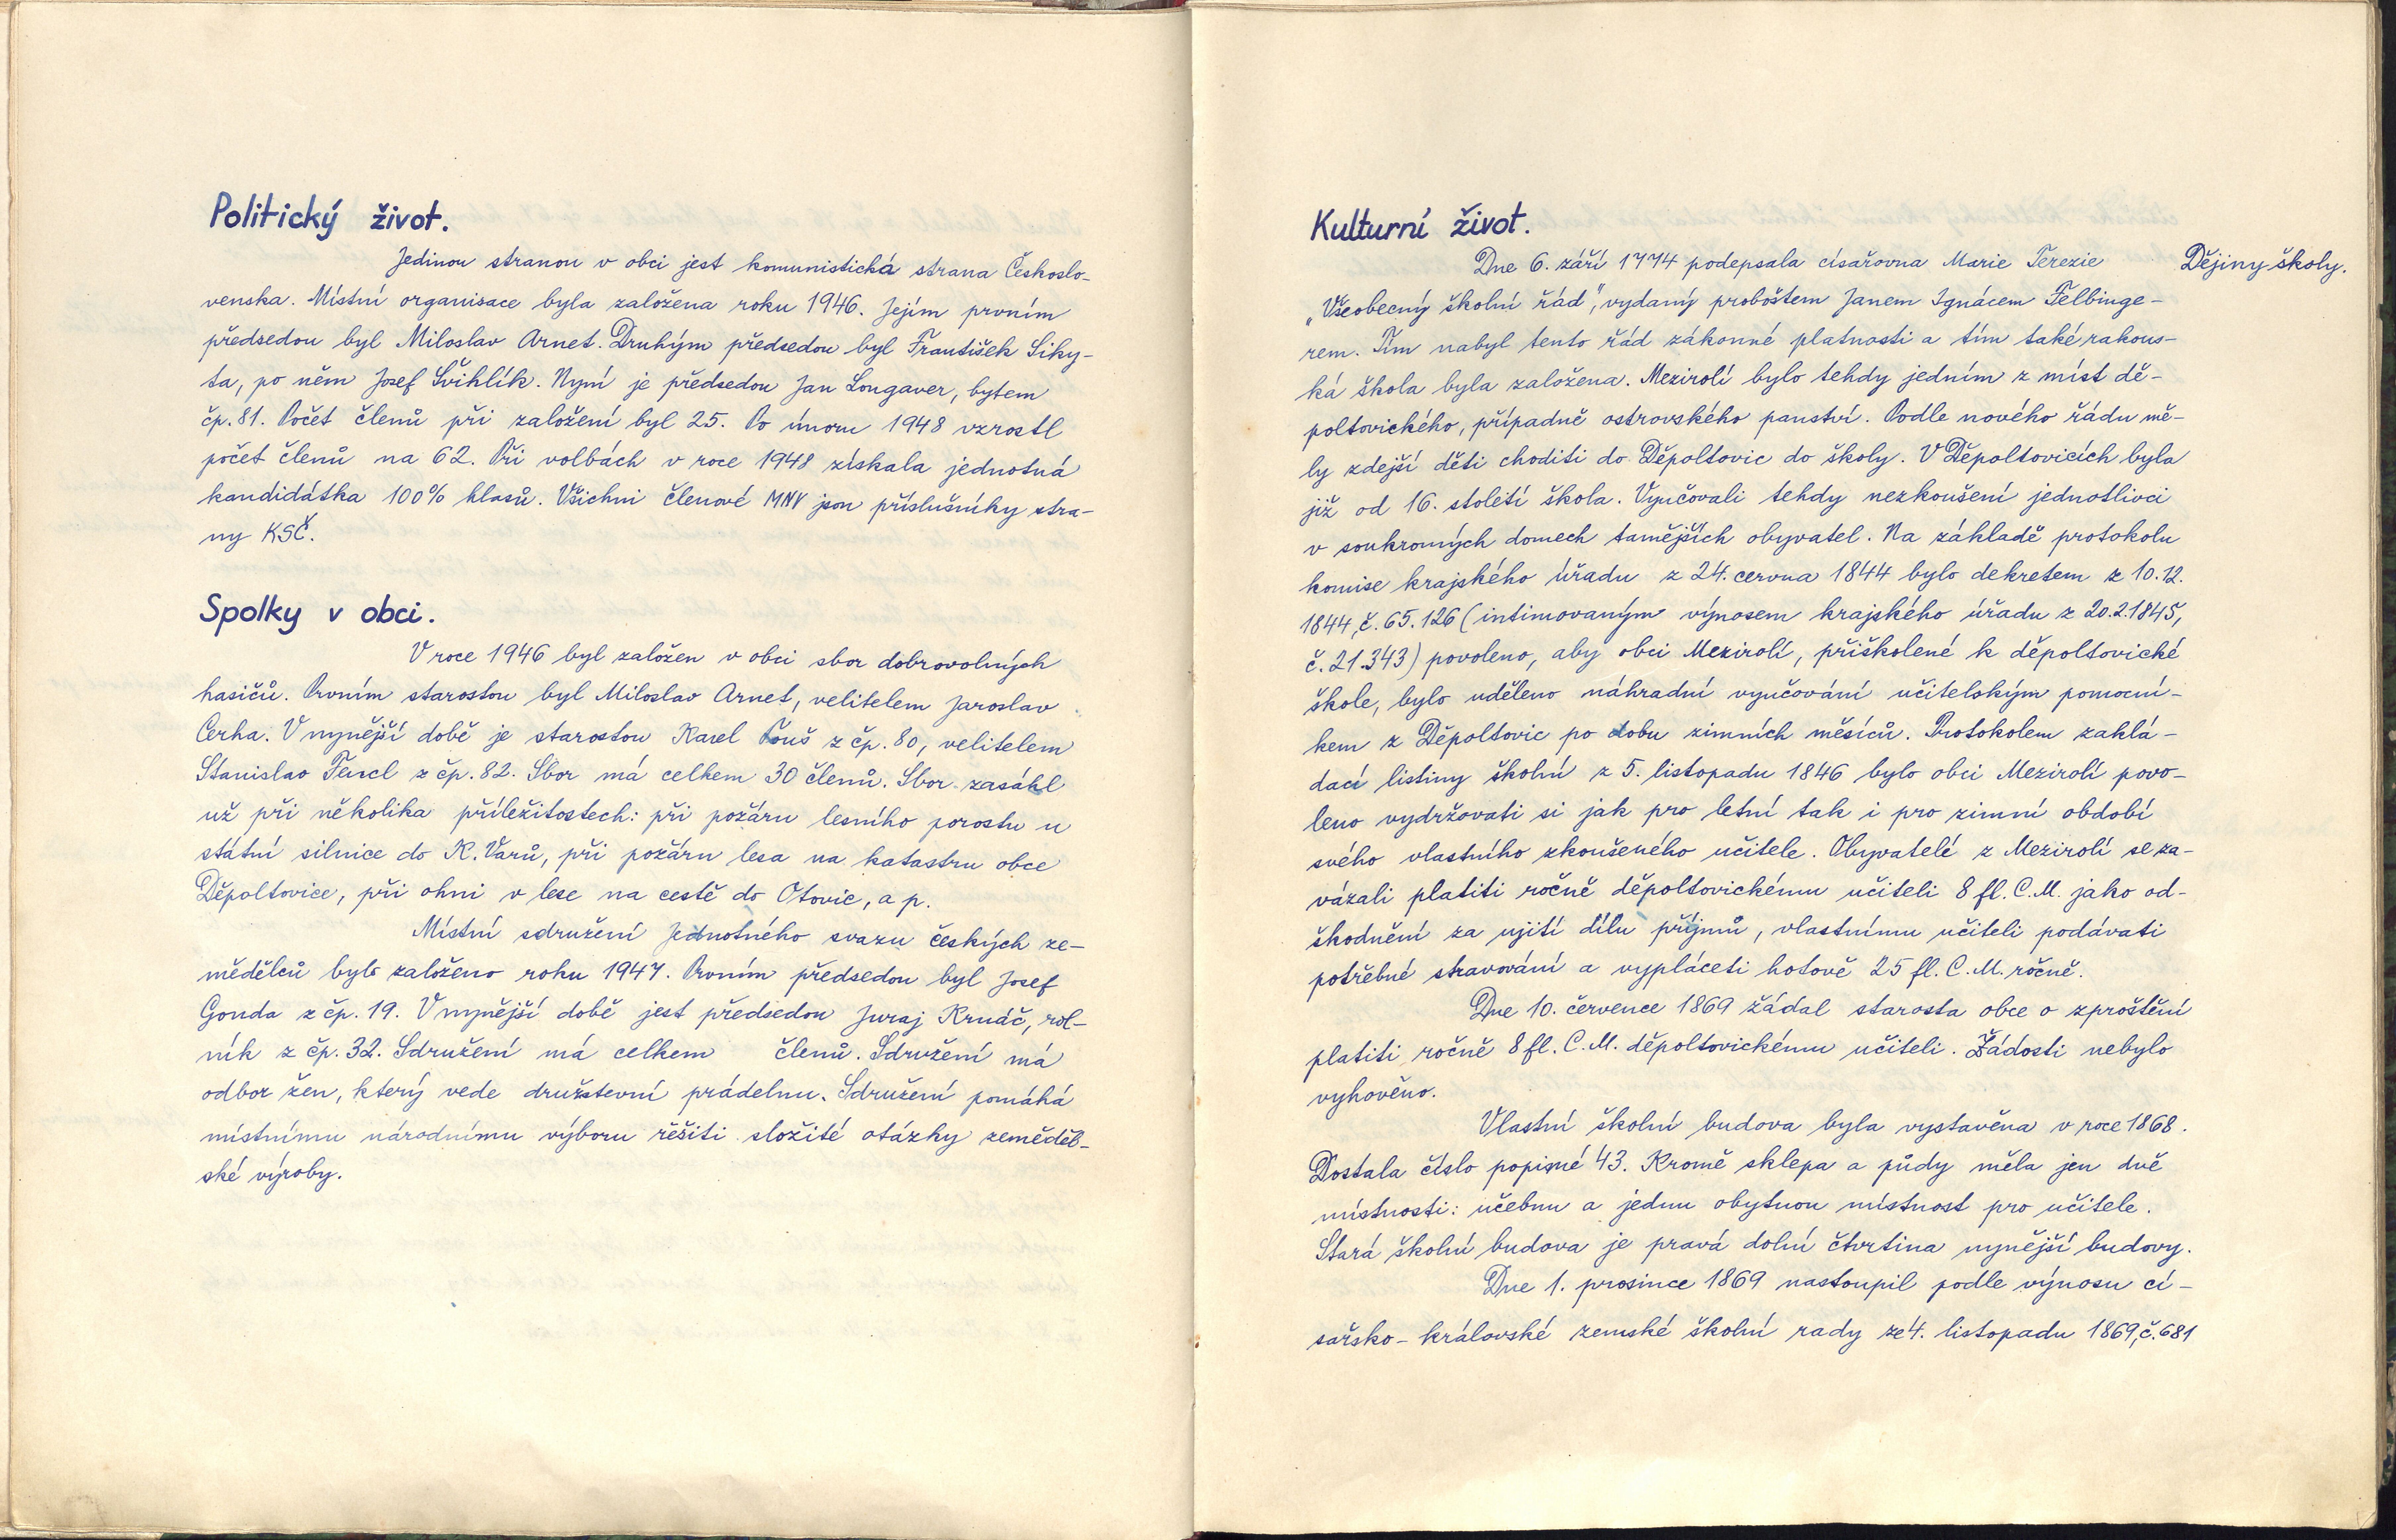 Politický život.
Jedinou stranou v obci jest komunistická strana Českoslo-
venska. Místní organisace byla založena roku 1946. Jejím prvním
předsedou byl Miloslav Arnet. Druhým předsedou byl František Siky-
ta, po něm Josef Švihlík. Nyní je předsedou Jan Longaver, bytem
čp. 81. Počet členů při založení byl 25. Po únoru 1948 vzrostl
počet členů na 62. Při volbách v roce 1948 získala jednotná
kandidátka 100% hlasů. Všichni členové MNV jsou příslušníky stra-
ny KSČ.
Spolky v obci.
V roce 1946 byl založen v obci sbor dobrovolných
hasičů. Prvním starostou byl Miloslav Arnet, velitelem Jaroslav
Cerha. V nynější době je starostou Karel Touš z čp. 80, velitelem
Stanislav z čp. 82. Sbor má celkem 30 členů. Sbor zasáhl
už při několika příležitostech: při požáru lesního porostu u
státní silnice do K. Varů, při požáru lesa na katastru obce
Děpoltovice, při ohni v lese na cestě do Otovic, a p.
Místní sdružení Jednotného svazu českých ze-
mědělců bylo založeno roku 1947. Prvním předsedou byl Josef
Gonda z čp. 19. V nynější době jest předsedou Juraj Krnáč, rol-
ník z čp. 32. Sdružení má celkem členů. Sdružení má
odbor žen, který vede družstevní prádelnu. Sdružení pomáhá
místnímu národnímu výboru řešiti složité otázky zeměděl-
ské výroby.
Kulturní život.
Dne 6. září 1774 podepsala císařovna Marie Terezie
Dějiny školy.
„Všeobecný školní řád", vydaný proboštem Janem Ignácem Felbinge-
rem. Tím nabyl tento řád zákonné platnosti a tím také rakous-
ká škola byla založena. Mezirolí bylo tehdy jedním z míst dě-
poltovického, případně ostrovského panství. Podle nového řádu mě-
ly zdejší děti choditi do Děpoltovic do školy. V Děpoltovicích byla
již od 16. století škola. Vyučovali tehdy nezkoušení jednotlivci
v soukromých domech tamějších obyvatel. Na základě protokolu
komise krajského úřadu z 24. cervna 1844 bylo dekretem z 10.12.
1844, č. 65.126 (intimovaným výnosem krajského úřadu z 20.2.1845,
č. 21.343) povoleno, aby obci Mezirolí, přiškolené k děpoltovické
škole, bylo uděleno náhradní vyučování učitelským pomocní-
kem z Děpoltovic po dobu zimních měsíců. Protokolem zaklá-
dací listiny školní z 5. listopadu 1846 bylo obci Mezirolí povo-
leno vydržovati si jak pro letní tak i pro zimní období
svého vlastního zkoušeného učitele. Obyvatelé z Mezirolí se za-
vázali platiti ročně děpoltovickému učiteli 8 fl. C. M. jako od-
škodnění za ujití dílu příjmů, vlastnímu učiteli podávati
potřebné stravování a vypláceti hotově 25 fl. C. M. ročně.
Dne 10. července 1869 žádal starosta obce o zproštění
platiti ročně 8 fl. C. M. děpoltovickému učiteli. Žádosti nebylo
vyhověno.
Vlastní školní budova byla vystavěna v roce 1868.
Dostala číslo popisné 43. Kromě sklepa a půdy měla jen dvě
místnosti: učebnu a jednu obytnou místnost pro učitele.
Stará školní budova je pravá dolní čtvrtina nynější budovy.
Dne 1. prosince 1869 nastoupil podle výnosu cí-
sařsko-královské zemské školní rady ze 4. listopadu 1869, č. 681